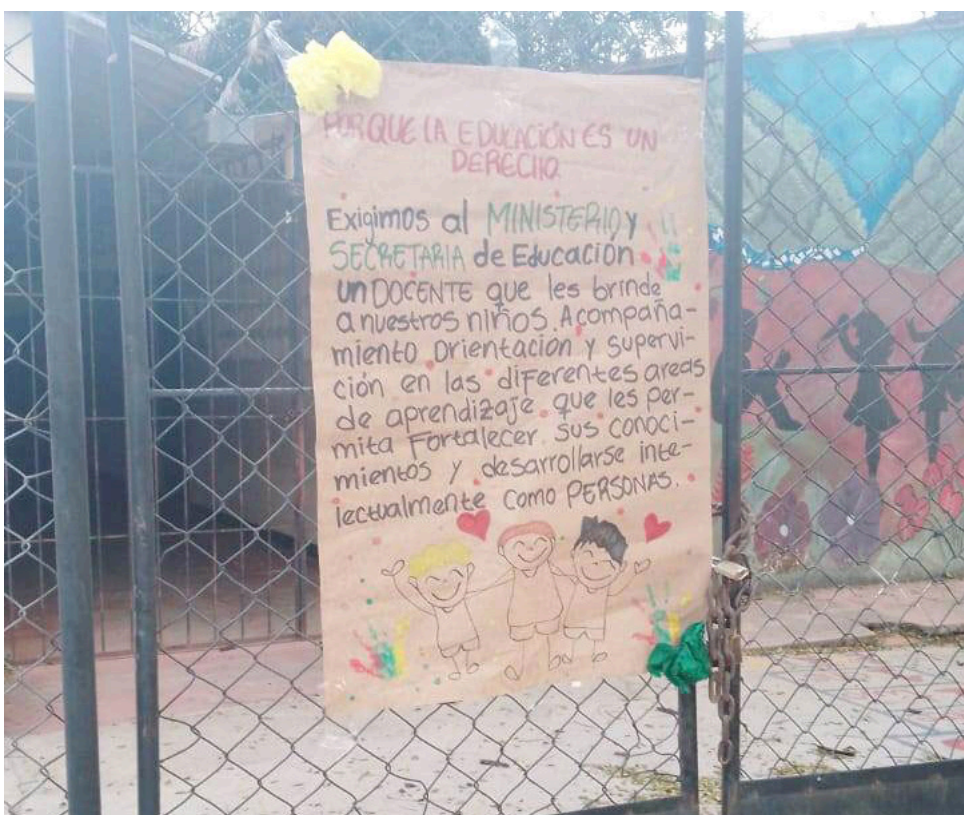 PORQUE LA EDUCACIÓN ES UN
DERECHO
Exigimos al MINISTERIO y
SECRETARIA de Educación
un DOCENTE que les brinde
a nuestros niños. Acompaña-
miento Orientación y supervi-
ción en las diferentes areas
de aprendizaje que les per-
mita Fortalecer sus conoci-
mientos y desarrollarse inte-
lectualmente como PERSONAS.